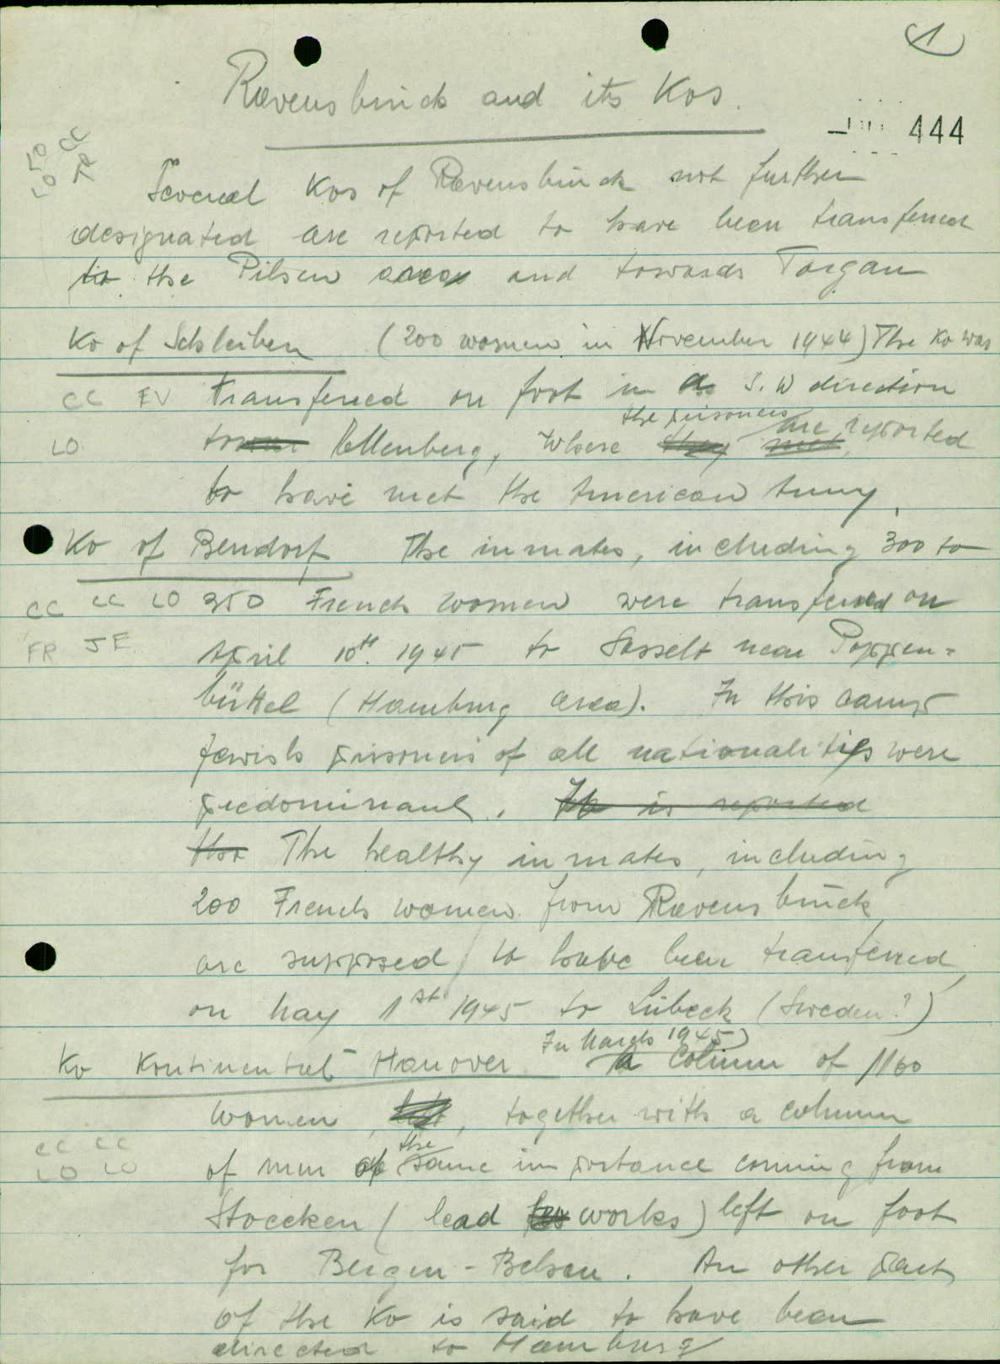 1
Ravensbrück and its Kos.
444
LO CC
LO FR
Several Kos of Ravensbrück not further
designated are reported to have been transferred
to the Pilsen area and towards Torgau
Ko of Schlieben (200 women in November 1944) The Ko was
CC EV transferred on foot in a S.W direction
the prisoners are
LO to where they met reported
to have met the American Army.
Ko of Bendorf The inmates, including 300 to
CC CC LO 350 French women were transferred on
FR JE April 10th 1945 to Sasselt near Poppen=
büttel (Hamburg area). In this camp
Jewish prisoners of all nationalities were
predominant. It is reported
tha The healthy inmates, including
200 French women from Ravensbrück
are supposed to have been transferred
on May 1st 1945 to Lübeck (Sweden?)
In March 1945
Ko Kontinental Hanover a Column of 1160
women, together with a column
CC CC the
LO LO of men of same importance coming from
Stoecken (lead works) left on foot
for Bergen-Belsen. An other part
of the Ko is said to have been
directed to Hamburg